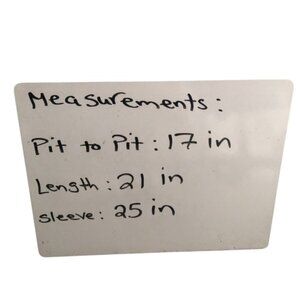 Measurements:
Pit to Pit: 17 in
Length: 21 in
sleeve: 25 in